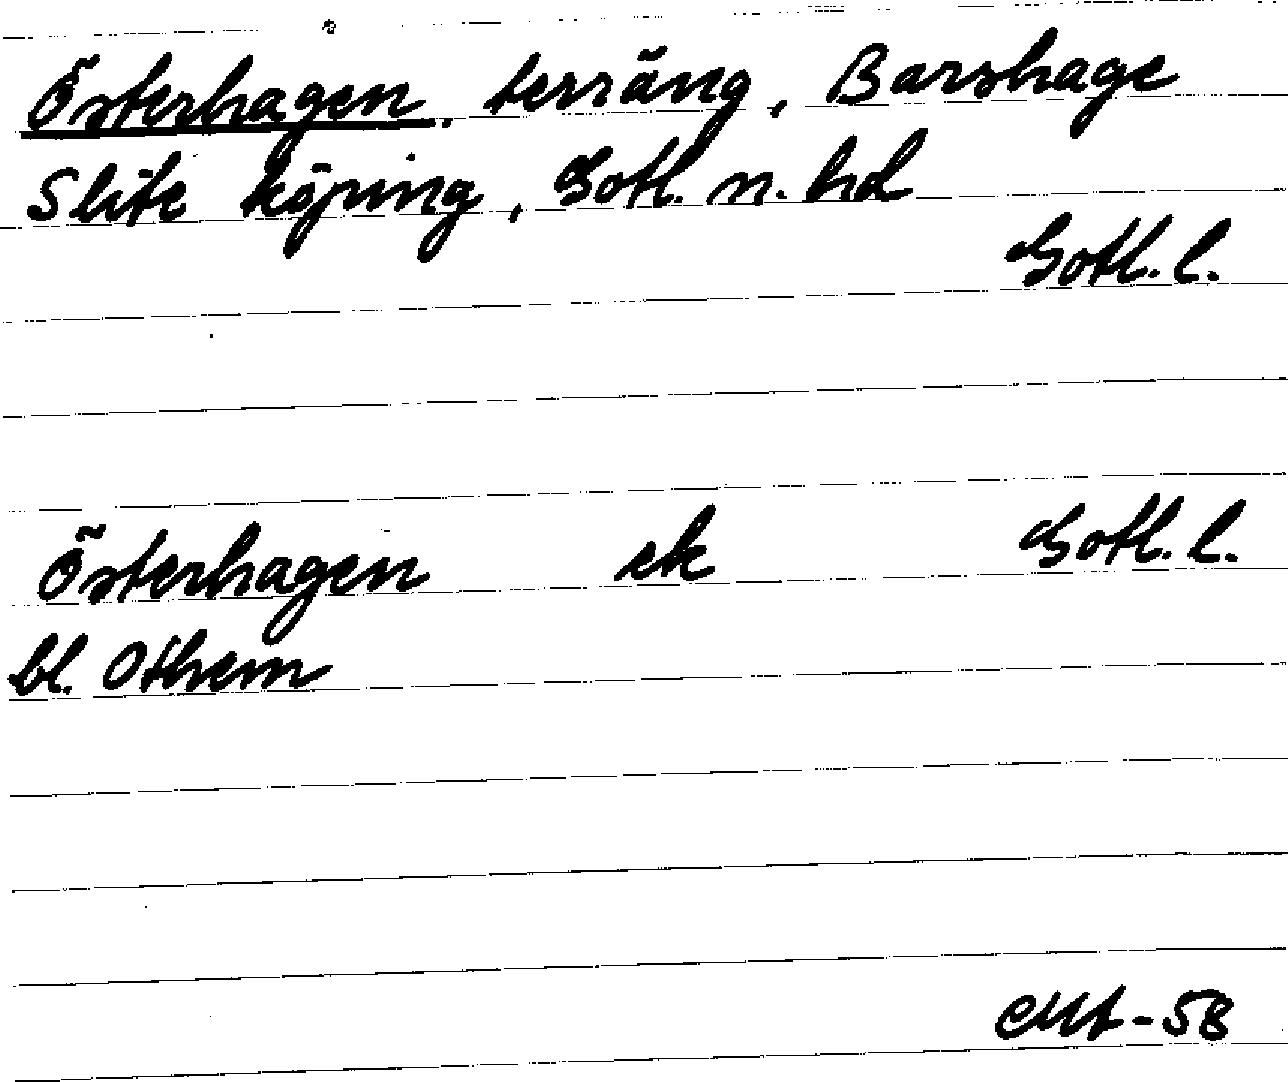 Österhagen, terräng, Barshage
Slite köping, Gotl. n. hd
Gotl. l.
Österhagen ek Gotl. l.
bl. Othem
-58